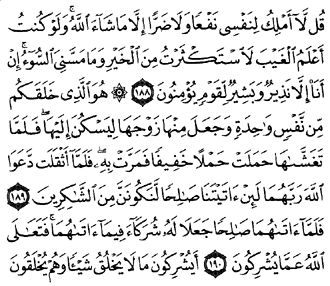 قُل لَّآ أَمْلِكُ لِنَفْسِى نَفْعًا وَلَا ضَرًّا إِلَّا مَا شَآءَ ٱللَّهُ ۚ وَلَوْ كُنتُ
أَعْلَمُ ٱلْغَيْبَ لَٱسْتَكْثَرْتُ مِنَ ٱلْخَيْرِ وَمَا مَسَّنِىَ ٱلسُّوٓءُ ۚ إِنْ
أَنَا۠ إِلَّا نَذِيرٌ وَبَشِيرٌ لِّقَوْمٍ يُؤْمِنُونَ ١٨٨ ۞ هُوَ ٱلَّذِى خَلَقَكُم
مِّن نَّفْسٍ وَٰحِدَةٍ وَجَعَلَ مِنْهَا زَوْجَهَا لِيَسْكُنَ إِلَيْهَا ۖ فَلَمَّا
تَغَشَّىٰهَا حَمَلَتْ حَمْلًا خَفِيفًا فَمَرَّتْ بِهِۦ ۖ فَلَمَّآ أَثْقَلَت دَّعَوَا
ٱللَّهَ رَبَّهُمَا لَئِنْ ءَاتَيْتَنَا صَٰلِحًا لَّنَكُونَنَّ مِنَ ٱلشَّٰكِرِينَ ١٨٩
فَلَمَّآ ءَاتَىٰهُمَا صَٰلِحًا جَعَلَا لَهُۥ شُرَكَآءَ فِيمَآ ءَاتَىٰهُمَا ۚ فَتَعَٰلَى
ٱللَّهُ عَمَّا يُشْرِكُونَ ١٩٠ أَيُشْرِكُونَ مَا لَا يَخْلُقُ شَيْـًٔا وَهُمْ يُخْلَقُونَ